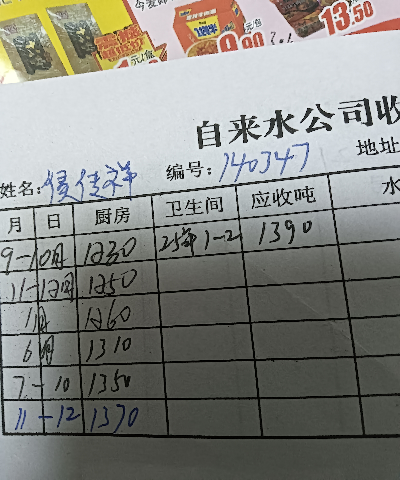 元/盒
9.90
元/盒
13.50
自来水公司收
姓名: 编号: 140347 地址
月 日 厨房 卫生间 应收吨 水
9-10月 1230 25年1-2 1390
11-12月 1250
1月 1260
6月 1310
7-10 1350
11-12 1370